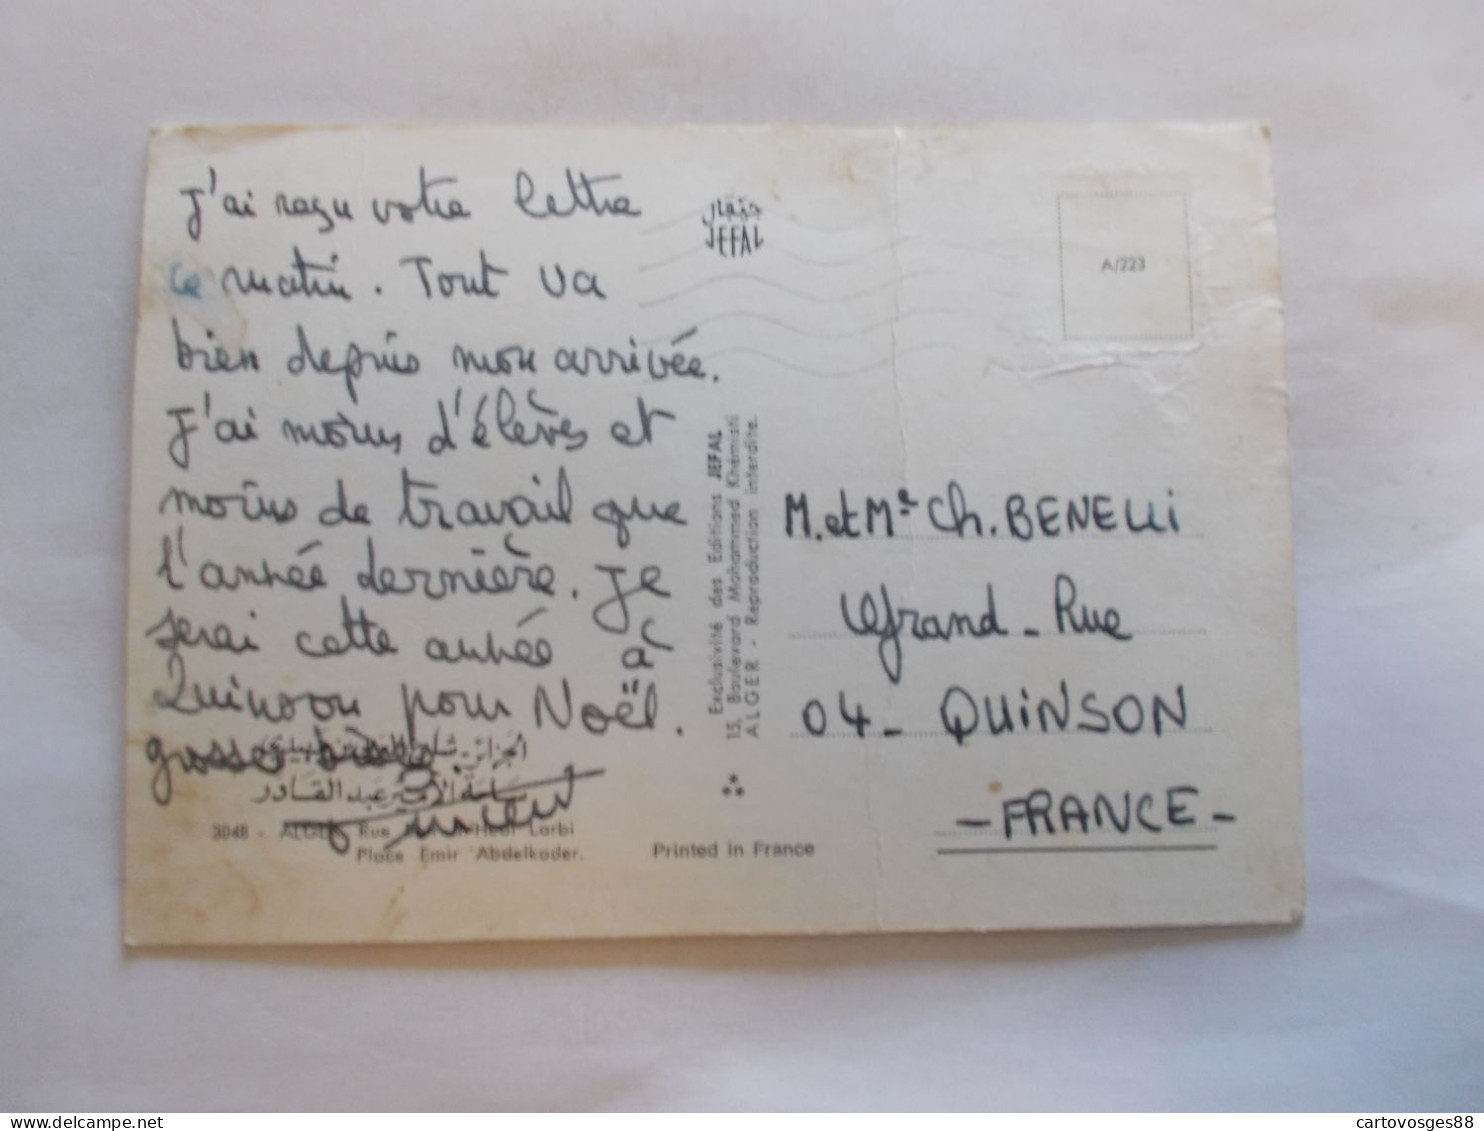 J'ai reçu votre lettre
ce matin. Tout va
bien depuis mon arrivée.
J'ai moins d'élèves et
moins de travail que
l'année dernière. Je
serai cette année à
Quinson pour Noël.
grosses bises
الجزائر - شارع
ساحة الأمير عبد القادر
3048 - ALGER. Rue Larbi
Place Emir Abdelkader.
Printed in France
جفال
JEFAL
Exclusivité des Editions JEFAL
15, Boulevard Mohammed Khémisti
ALGER - Reproduction interdite.
A/223
M. et Me Ch. BENELLI
Grand-Rue
04 - QUINSON
- FRANCE -
cartovosges88